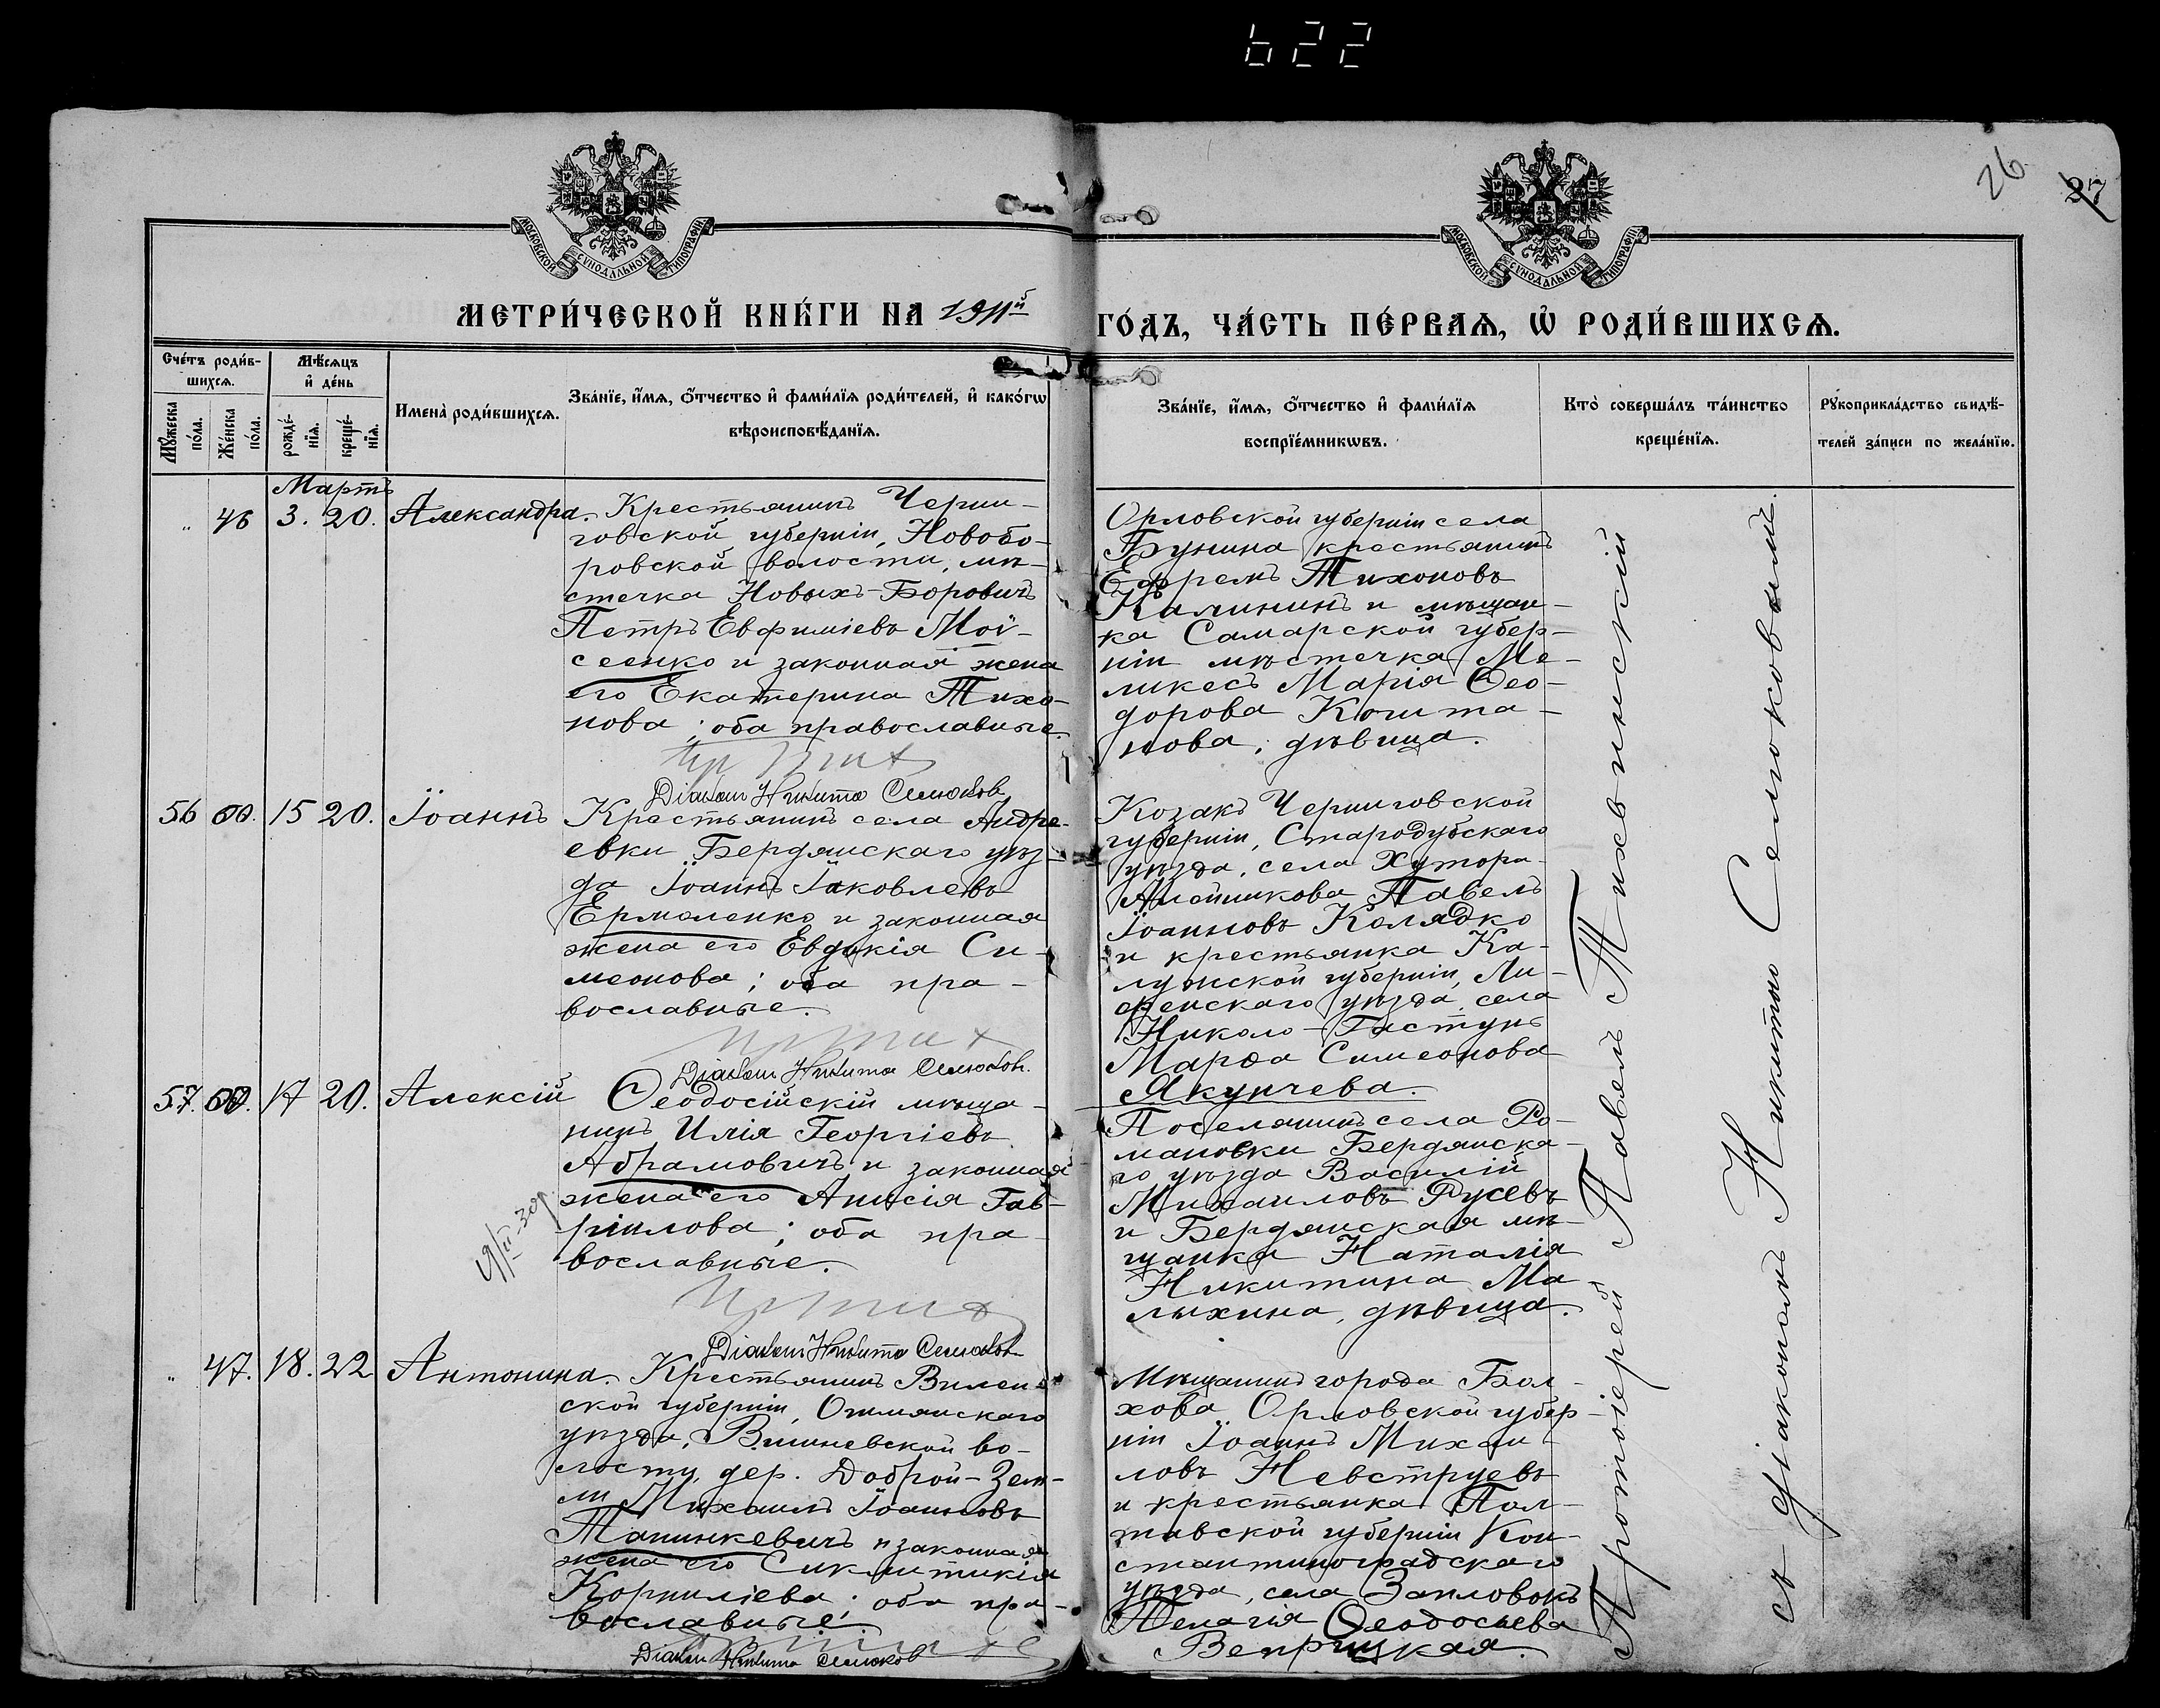 622
26
27
МОСКОВСКОЙ СѴНОДАЛЬНОЙ ТИПОГРАФІИ
МОСКОВСКОЙ СѴНОДАЛЬНОЙ ТИПОГРАФІИ
МЕТРИ́ЧЕСКОЙ КНИ́ГИ НА 1911й
ГО́ДЪ, ЧА́СТЬ ПЕ́РВАѦ, Ѡ҆ РОДИ́ВШИХСѦ.
Сче́тъ роди́в-
шихсѧ.
Мꙋ́жеска
по́ла.
Же́нска
по́ла.
Мѣ́сѧцъ
и҆ де́нь
рожде́-
нїѧ.
креще́-
нїѧ.
Имена̀ роди́вшихсѧ.
Зва́нїе, и҆́мѧ, ѻ҆́тчество и҆ фами́лїѧ роди́телей, и҆ како́гѡ
вѣроисповѣ́данїѧ.
Зва́нїе, и҆́мѧ, ѻ҆́тчество и҆ фами́лїѧ
воспрїе́мникѡвъ.
Кто̀ соверша́лъ та́инство
креще́нїѧ.
Рꙋкоприкла́дство свидѣ́-
телей за́писи по жела́нїю.
Мартъ
46 3. 20. Александра.
Крестьянинъ Черни-
говской губерніи, Новобо-
ровской волости, мѣ-
стечка Новыхъ-Боровичъ
Петръ Евфиміевъ Мои-
сеенко и законная жена
его Екатерина Тихо-
нова; оба православные.
Діаконъ Никита Селюков
Орловской губерніи села
Бунина крестьянинъ
Ефремъ Тихоновъ
Калининъ и мѣщан-
ка Самарской губер-
ніи мѣстечка Ме-
ликесъ Марія Ѳео-
дорова Кошта-
нова, дѣвица.
56 15 20. Іоаннъ
Крестьянинъ села Андре-
евки Бердянскаго уѣз-
да Іоаннъ Іаковлевъ
Ермоленко и законная
жена его Евдокія Си-
меонова; оба пра-
вославные.
Діаконъ Никита Селюков.
Козакъ Черниговской
губерніи, Стародубскаго
уѣзда, села Хутора-
Алейникова Павелъ
Іоанновъ Колядко
и крестьянка Ка-
лужской губерніи, Ли-
фенскаго уѣзда села
Николо-Гастунь
Марѳа Симеонова
Якунчева.
57. 17 20. Алексій
Ѳеодосійскій мѣща-
нинъ Илія Георгіевъ
Абрамовичъ и законная
жена его Анисія Гав-
ріилова; оба пра-
вославные.
Діаконъ Никита Селюков
Поселянинъ села Ро-
мановки Бердянска-
го уѣзда Василій
Михаиловъ Русевъ
и Бердянская мѣ-
щанка Наталія
Никитина Ма-
лыхина, дѣвица.
47. 18. 22 Антонина.
Крестьянинъ Вилен-
ской губерніи, Ошмянскаго
уѣзда, Вишневской во-
лости, дер. Доброй-Зем-
ли Михаилъ Іоанновъ
Танинкевичъ и законная
жена его Синклитикія
Корниліева; оба пра-
вославные.
Діаконъ Никита Селюков
Мѣщанинъ города Бол-
хова Орловской губер-
ніи Іоаннъ Михаи-
ловъ Невструевъ
и крестьянка Пол-
тавской губерніи Кон-
стантиноградскаго
уѣзда, села Зачловокъ
Пелагія Ѳеодосьева
Веприцкая.
Протоіерей Павелъ Тихвинскій
съ діакономъ Никитою Селюковымъ.